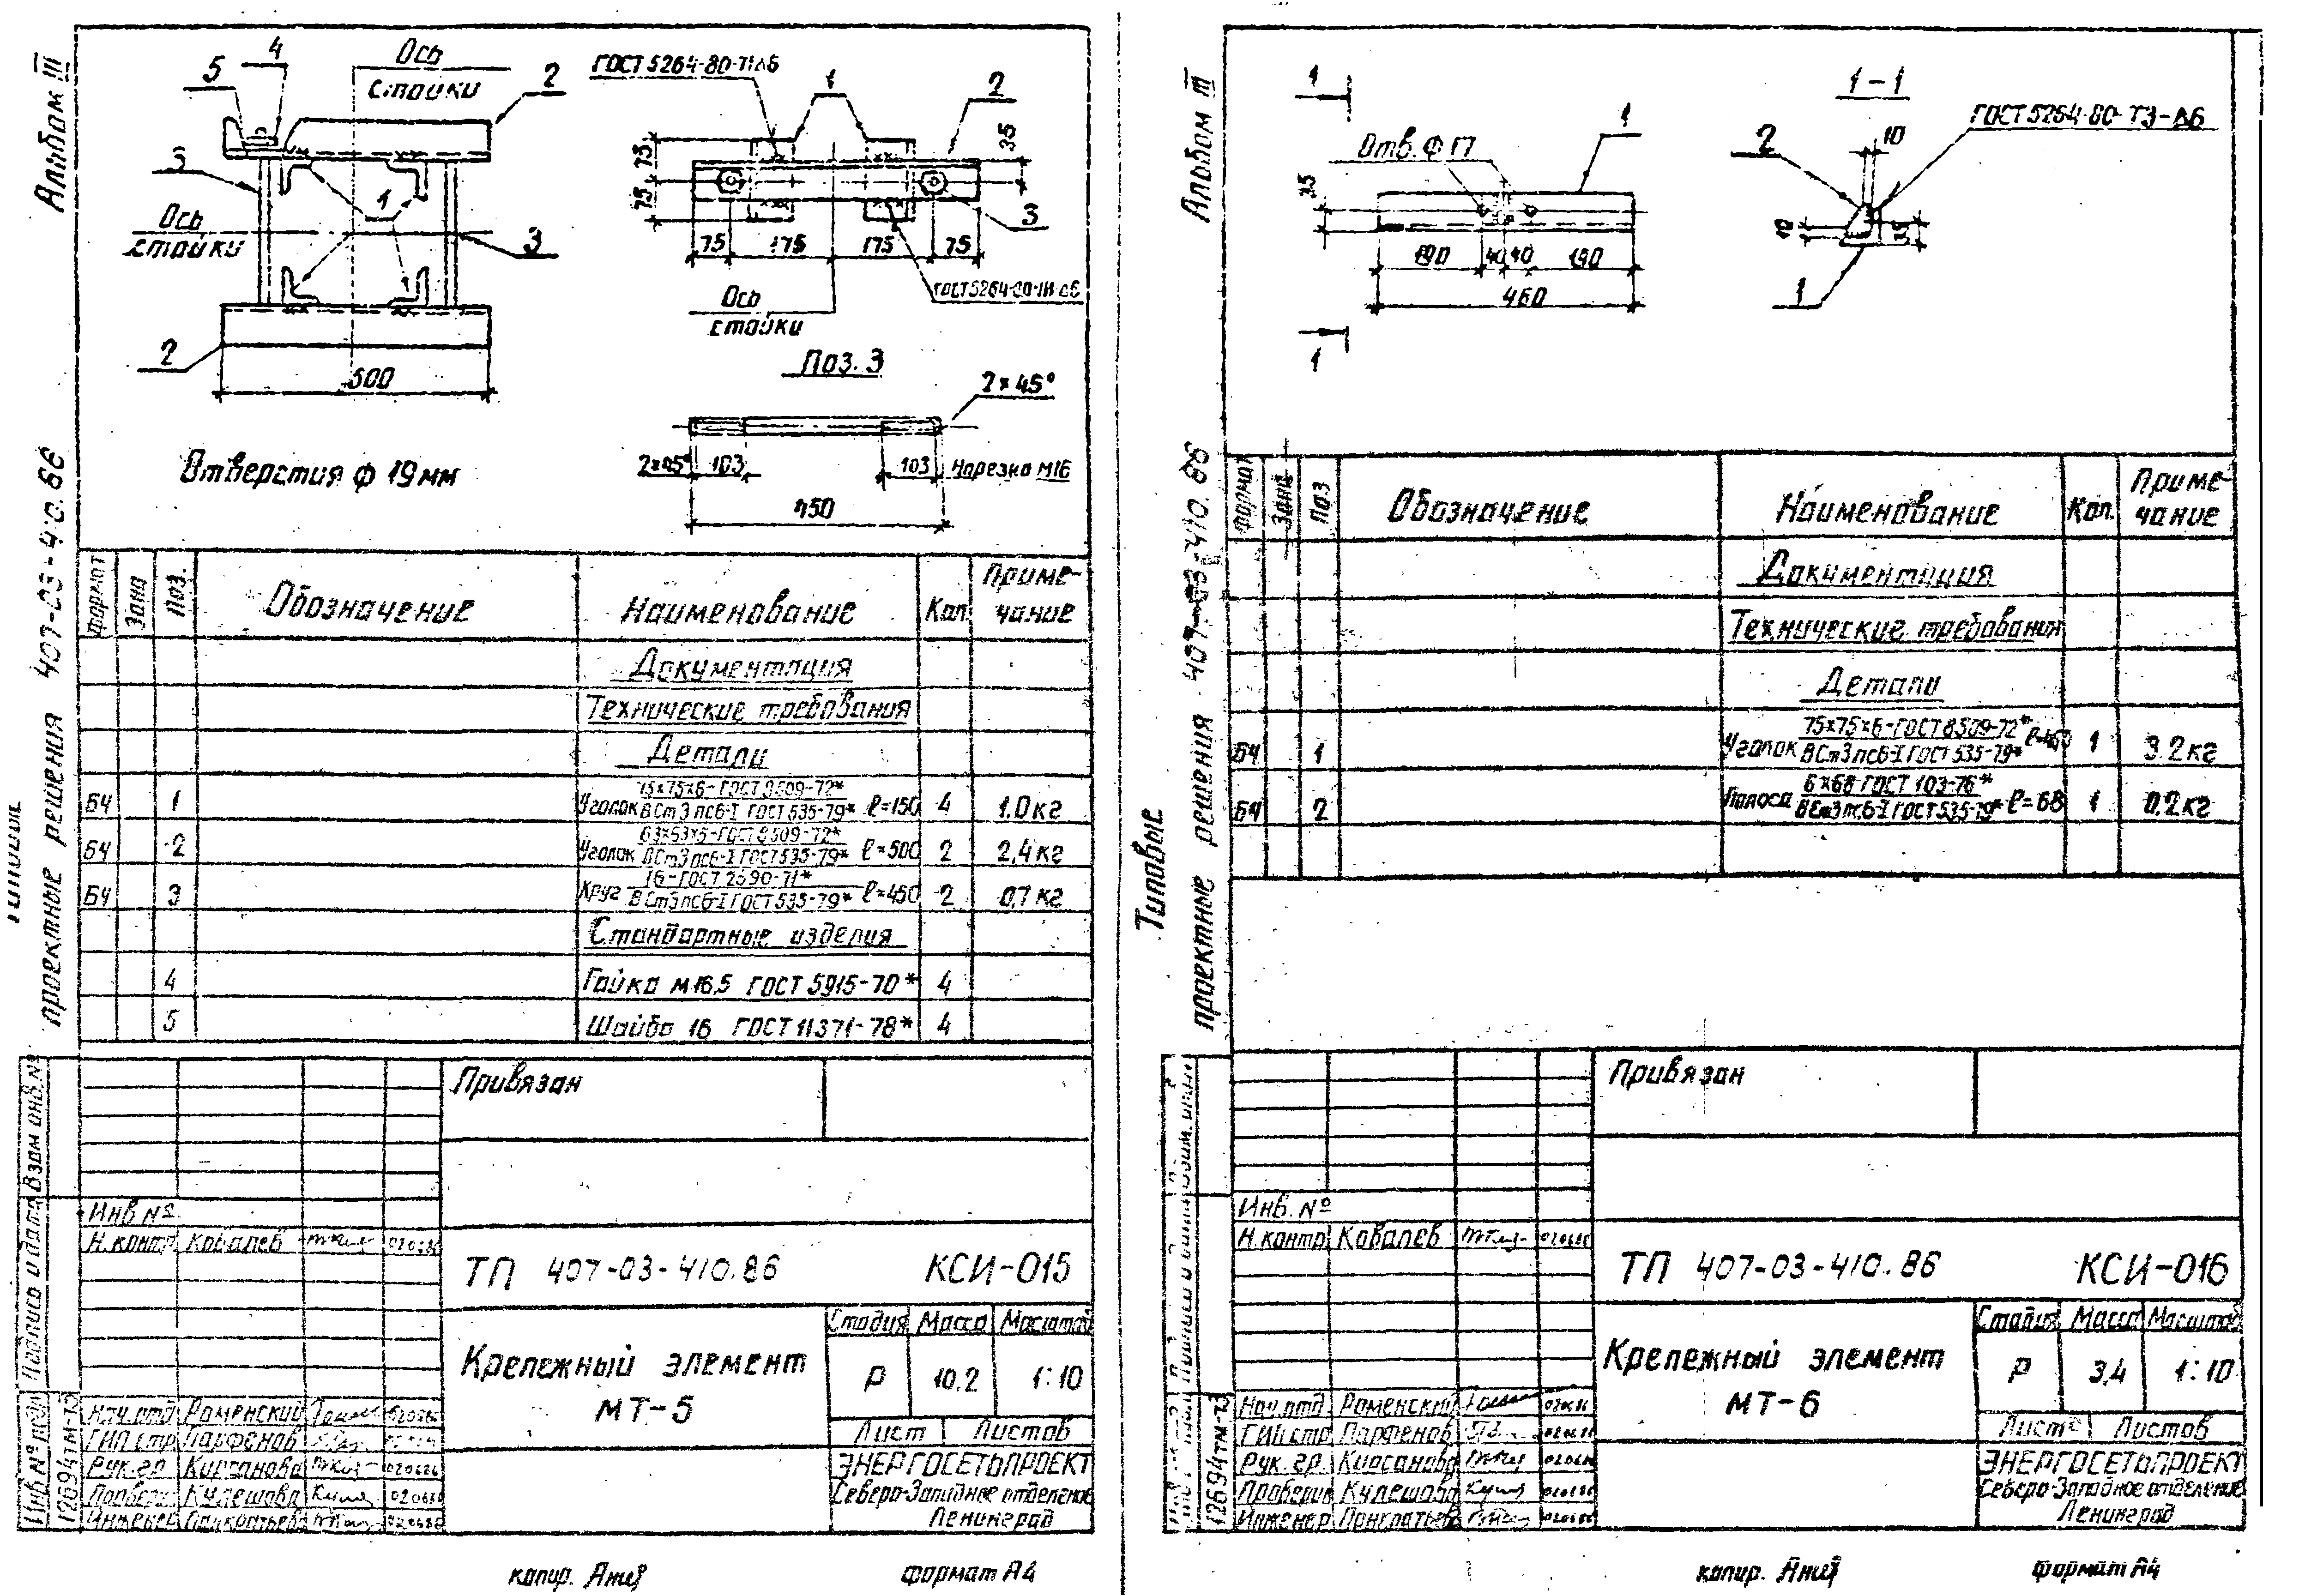 Альбом III
проектные решения 407-03-410.86
Ось
стойки
4
5
2
3
1
Ось
стойки
3
2
500
Отверстия ф 19мм
1
2
35
75
75
3
75
175
175
75
Ось
стойки
Поз. 3
2×45°
2×45°
103
103
Нарезка М16
450
Формат
Зона
Поз.
Обозначение
Наименование
Кол.
Приме-
чание
Документация
Технические требования
Детали
БЧ 1 Уголок 75×75×6-ГОСТ 8509-72* ВСт3пс6-I ГОСТ 535-79* ℓ=150 4 1.0кг
БЧ 2 Уголок 63×63×5-ГОСТ 8509-72* ВСт3пс6-I ГОСТ 535-79* ℓ=500 2 2,4кг
БЧ 3 Круг 16-ГОСТ 2590-71* ВСт3пс6-I ГОСТ 535-79* ℓ=450 2 0,7кг
Стандартные изделия
4 Гайка М16.5 ГОСТ 5915-70* 4
5 Шайба 16 ГОСТ 11371-78* 4
Привязан
Взам инв.№
Подпись и дата
12694тм-т3
Инв №
Н.контр Ковалев 020686
ТП 407-03-410.86 КСИ-015
Крепежный элемент
МТ-5
Стадия Масса Масштаб
Р 10.2 1:10
Лист Листов
Нач.отд Роменский
ГИП стр Парфенов
Рук.гр Кирсанова 020686
Кулешова
Инженер Панкратьев
ЭНЕРГОСЕТЬПРОЕКТ
Северо-Западное отделение
Ленинград
копир.
формат А4
Альбом III
Типовые
проектные решения 407-03-410.86
1
1
1-1
ГОСТ 5264-80-Т3-Δ6
Отв. Ф 17
1
2
10
35
10
35
190
40
40
190
460
1
Формат
Зона
Поз
Обозначение
Наименование
Кол.
Приме-
чание
Документация
Технические требования
Детали
БЧ 1 Уголок 75×75×6-ГОСТ 8509-72* ВСт3пс6-I ГОСТ 535-79* ℓ=460 1 3.2кг
БЧ 2 Полоса 6×68 ГОСТ 103-76* ВСт3пс6-I ГОСТ 535-79* ℓ=68 1 0.2кг
Привязан
12694тм-т3
Инв. №
Н.контр Ковалев 020686
ТП 407-03-410.86 КСИ-016
Крепежный элемент
МТ-6
Стадия Масса Масштаб
Р 3,4 1:10
Лист Листов
Нач.отд Роменский
ГИП стр Парфенов
Рук.гр. Кирсанова
Проверил Кулешова
Инженер Панкратьев
ЭНЕРГОСЕТЬПРОЕКТ
Северо-Западное отделение
Ленинград
копир.
формат А4